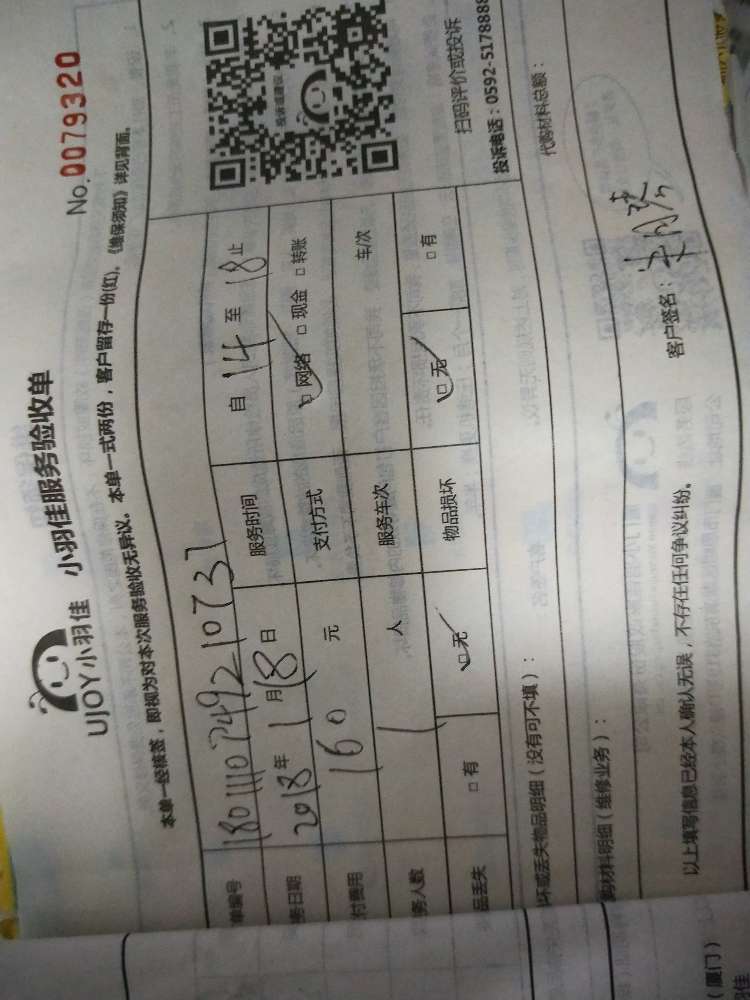 No. 0079320
UJOY小羽佳 小羽佳服务验收单
本单一经核签，即视为对本次服务验收无异议。本单一式两份，客户留存一份(红)。《维保须知》详见背面。
单编号 180111074921073
务日期 2018年1月18日 服务时间 自14至18止
付费用 160元 支付方式 □网络 □现金 □转账
务人数 1人 服务车次 车/次
品丢失 □有 □无 物品损坏 □无 □有
扫码评价或投诉
投诉电话：0592-5178888
坏或丢失物品明细（没有可不填）：
购材料明细（维修业务）： 代购材料总额：
以上填写信息已经本人确认无误，不存在任何争议纠纷。 客户签名：
（厦门）
佳